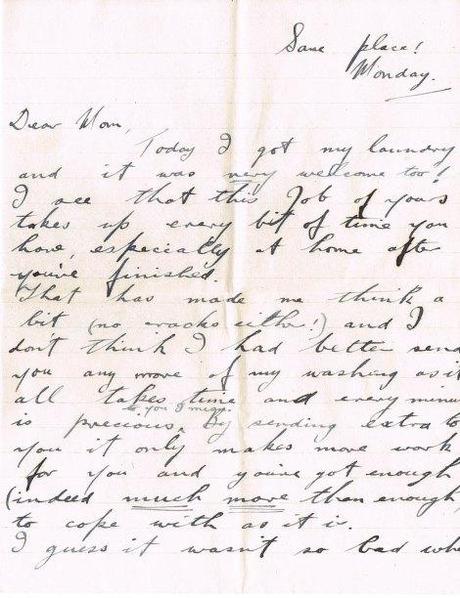 Same place!
Monday.
Dear Mom,
Today I got my laundry
and it was very welcome too!
I see that this Job of yours
takes up every bit of time you
have, especially at home after
you're finished.
That has made me think a
bit (no cracks either!) and I
don't think I had better send
you any more of my washing as it
all takes time and every minu
to you I mean.
is precious, By sending extra to
you it only makes more work
for you and you've got enough
(indeed much more then enough,
to cope with as it is.
I guess it wasn't so bad whe